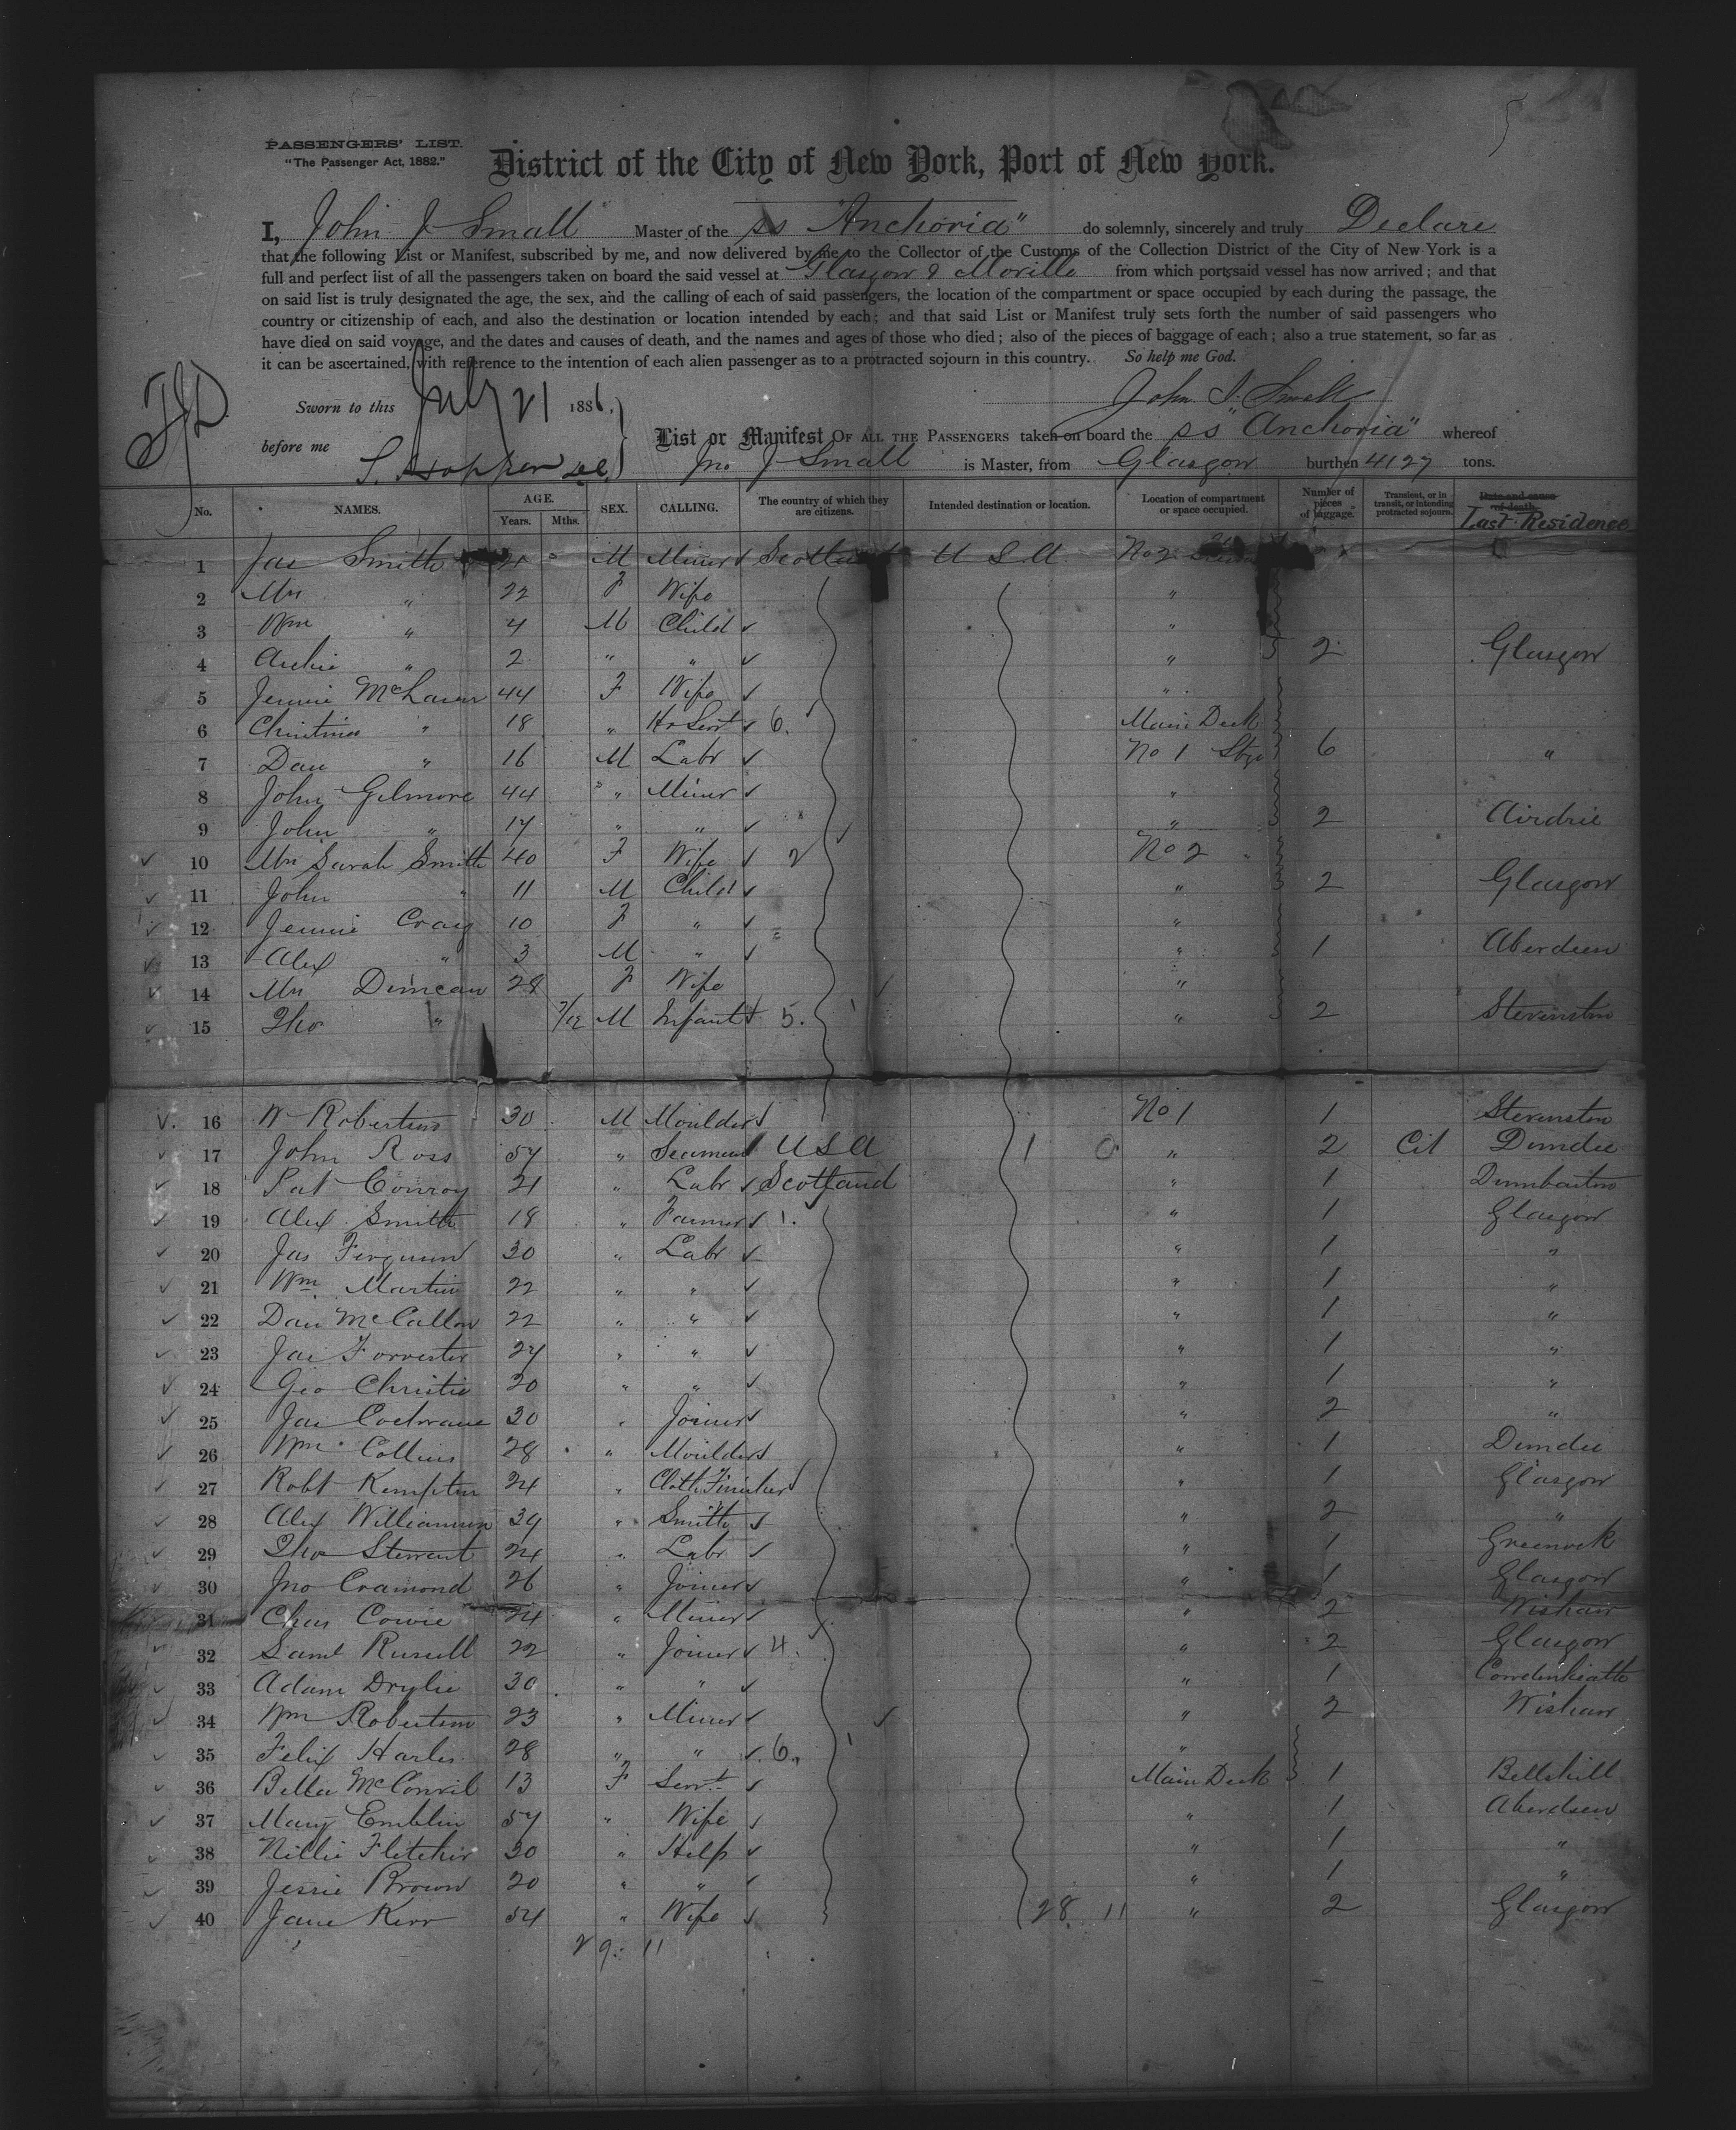 PASSENGERS' LIST.
"The Passenger Act, 1882."
District of the City of New York, Port of New York.
I, John J Small Master of the ss "Anchoria" do solemnly, sincerely and truly Declare
that the following List or Manifest, subscribed by me, and now delivered by me to the Collector of the Customs of the Collection District of the City of New York is a
full and perfect list of all the passengers taken on board the said vessel at Glasgow & Moville from which ports said vessel has now arrived; and that
on said list is truly designated the age, the sex, and the calling of each of said passengers, the location of the compartment or space occupied by each during the passage, the
country or citizenship of each, and also the destination or location intended by each; and that said List or Manifest truly sets forth the number of said passengers who
have died on said voyage, and the dates and causes of death, and the names and ages of those who died; also of the pieces of baggage of each; also a true statement, so far as
it can be ascertained, with reference to the intention of each alien passenger as to a protracted sojourn in this country. So help me God.
Sworn to this July 21 1886. John J. Small
before me
List or Manifest OF ALL THE PASSENGERS taken on board the ss "Anchoria" whereof
Jno J Small is Master, from Glasgow burthen 4127 tons.
No. NAMES. AGE. Years. Mths. SEX. CALLING. The country of which they are citizens. Intended destination or location. Location of compartment or space occupied. Number of pieces of baggage. Transient, or in transit, or intending protracted sojourn. Date and cause of death. Last Residence
1 Jas Smith M Miner Scotland U S A No 2
2 Mrs " 22 F Wife "
3 Wm " 4 M Child "
4 Archie " 2 " " " 2 Glasgow
5 Jennie McLaren 44 F Wife "
6 Christina " 18 " Ho Servt 6. Main Deck
7 Dan " 16 M Labr No 1 Stge 6 "
8 John Gilmore 44 " Miner "
9 John " 17 " " " 2 Airdrie
10 Mrs Sarah Smith 40 F Wife 2 No 2 "
11 John " 11 M Child " 2 Glasgow
12 Jennie Craig 10 F " "
13 Alex " 3 M " " 1 Aberdeen
14 Mrs Duncan 28 F Wife "
15 Tho " 7/12 M Infant 5. " 2 Stevenston
16 W Robertson 30 M Moulder No 1 1 Stevenston
17 John Ross 57 " Seaman U S A 1 0 " 2 Cit Dundee
18 Pat Conroy 21 " Labr Scotland " 1 Dumbarton
19 Alex Smith 18 " Farmer 1. " 1 Glasgow
20 Jas Ferguson 30 " Labr " 1 "
21 Wm Martin 22 " " " 1 "
22 Dan McCallon 22 " " " 1 "
23 Jas Forrester 27 " " " 1 "
24 Geo Christie 20 " " " 1 "
25 Jas Cochrane 30 " Joiner " 2 "
26 Wm Collins 28 " Moulder " 1 Dundee
27 Robt Kempton 24 " Cloth Finisher " 1 Glasgow
28 Alex Williamson 39 " Smith " 2 "
29 Tho Stewart 24 " Labr " 1 Greenock
30 Jno Cramond 26 " Joiner " 1 Glasgow
31 Chas Cowie 24 " Miner " 2 Wishaw
32 Saml Russell 22 " Joiner 4. " 2 Glasgow
33 Adam Drylie 30 " " " 1 Cowdenheath
34 Wm Robertson 23 " Miner " 2 Wishaw
35 Felix 28 " " 6. "
36 Bella McConvil 13 F Servt Main Deck 1 Bellshill
37 Mary Emblin 57 " Wife " 1 Aberdeen
38 Nellie Fletcher 30 " Help " 1 "
39 Jessie Brown 20 " " " 1 "
40 Jane Kerr 54 " Wife 28 11 " 2 Glasgow
29. 11